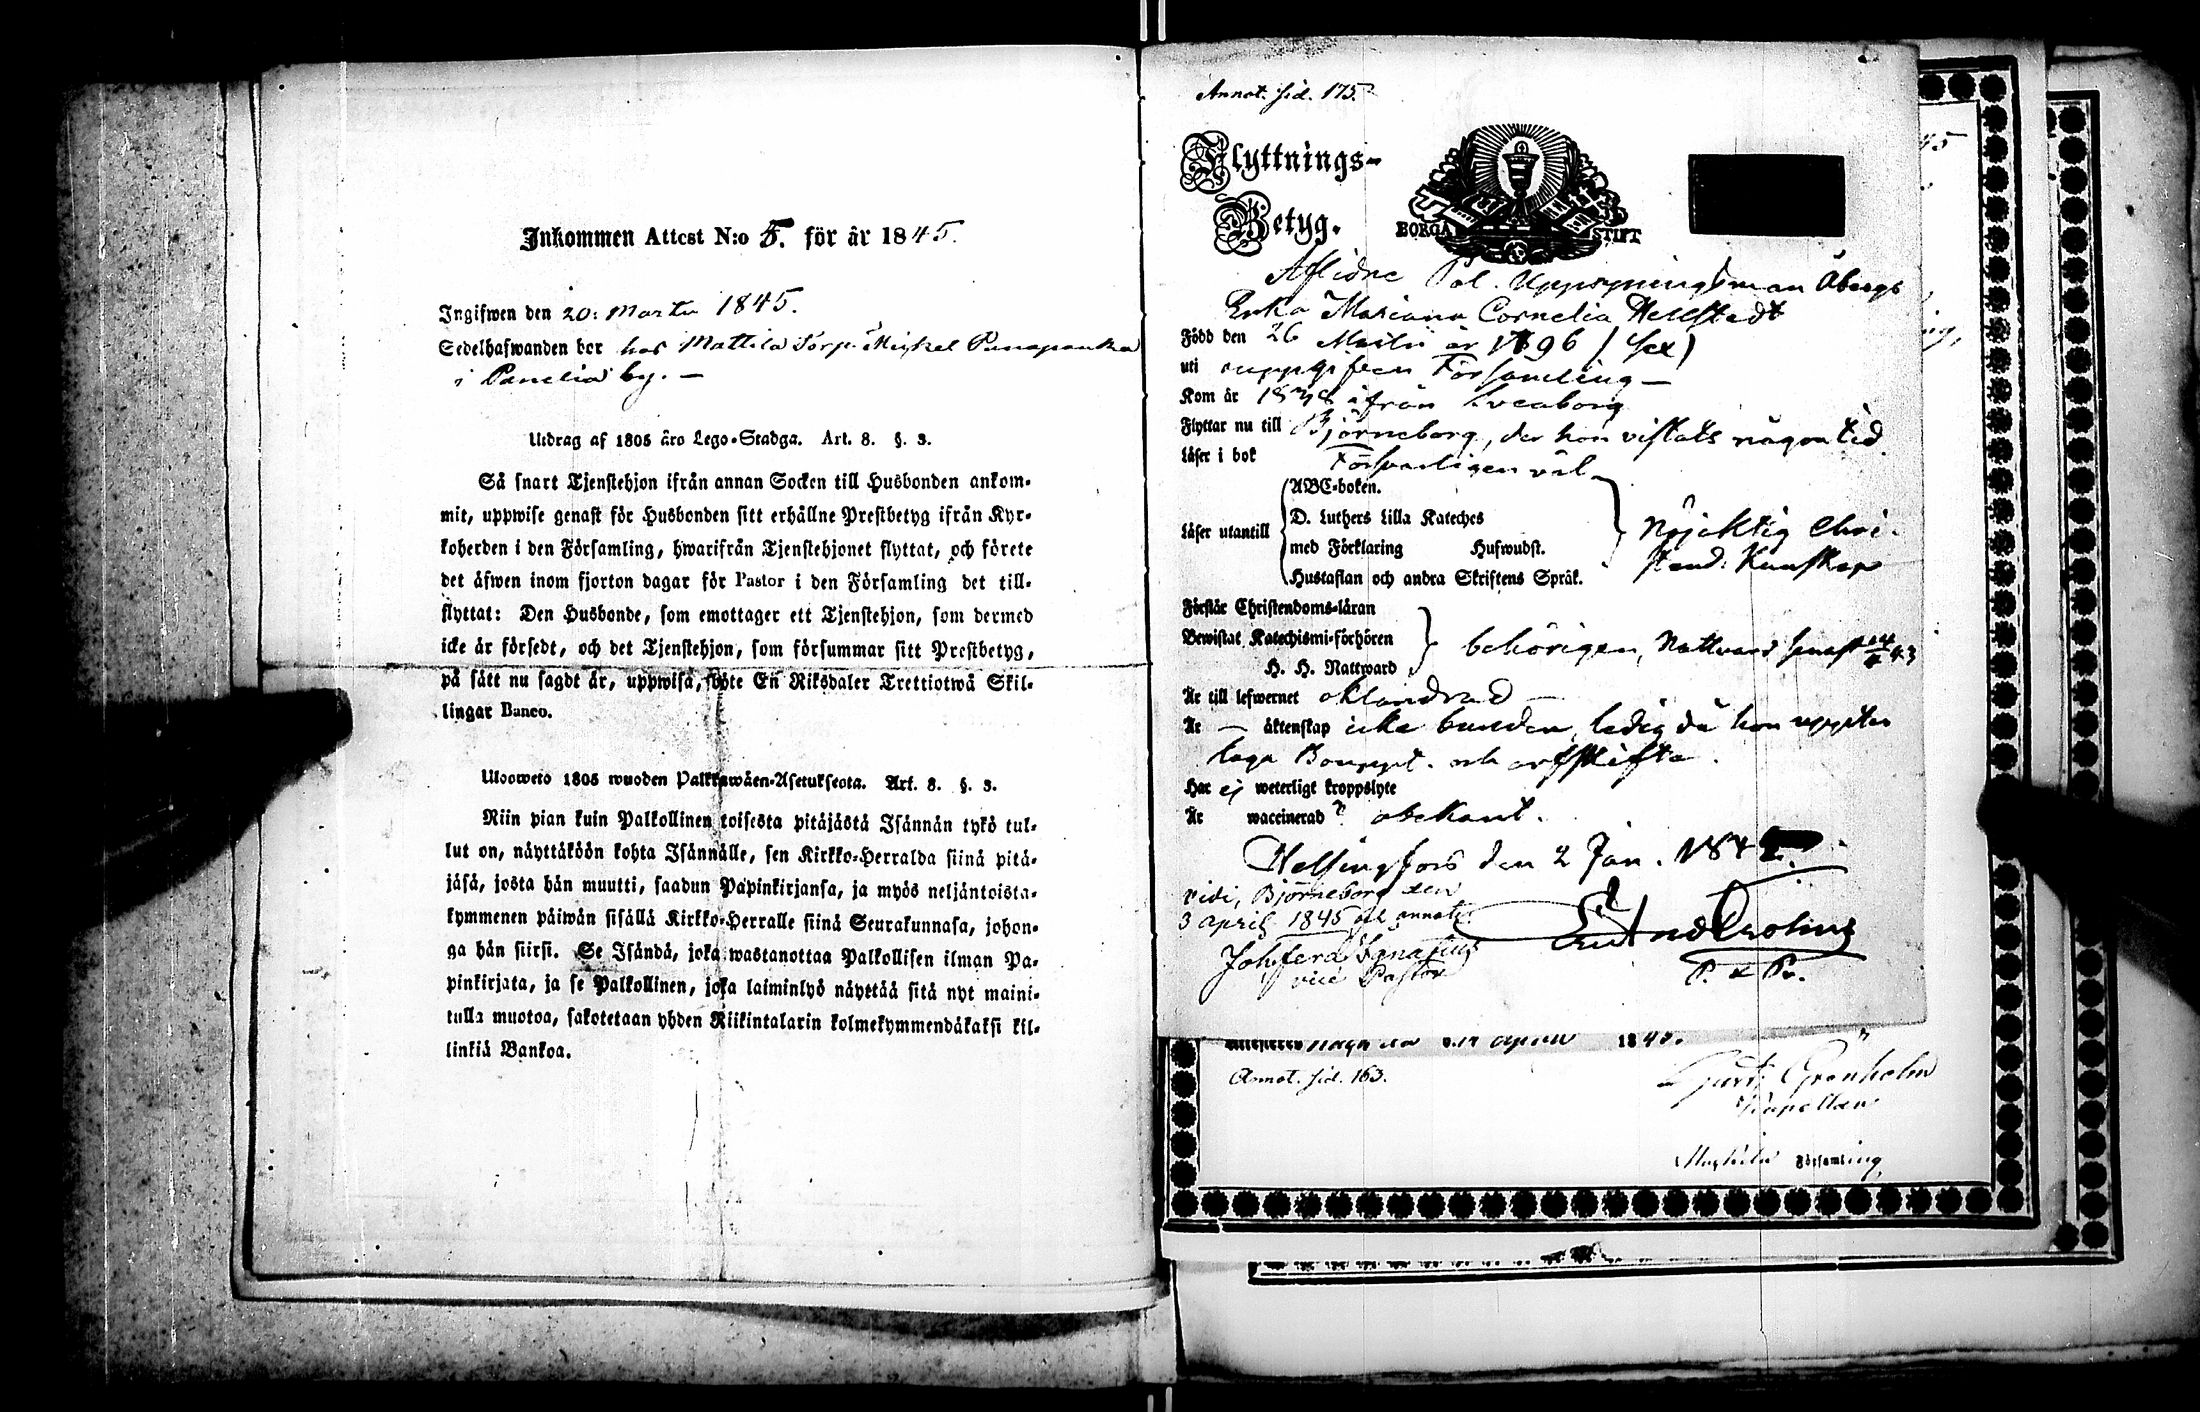 Inkommen Attest N:o 5. för år 1845.
Ingifwen den 20: Martii 1845.
Sedelhafwanden bor hos Mattila Torp: Michel Panapanka
i Panelia by. —
Utdrag af 1805 års Lego-Stadga. Art. 8. §. 3.
Så snart Tjenstehjon ifrån annan Socken till Husbonden ankom-
mit, uppwise genast för Husbonden sitt erhållne Prestbetyg ifrån Kyr-
koherden i den Församling, hwarifrån Tjenstehjonet flyttat, och förete
det äfwen inom fjorton dagar för Pastor i den Församling det till-
flyttat: Den Husbonde, som emottager ett Tjenstehjon, som dermed
icke är försedt, och det Tjenstehjon, som försummar sitt Prestbetyg,
på sätt nu sagdt är, uppwisa, böte En Riksdaler Trettiotwå Skil-
lingar Banco.
Uloswetos 1805 wuoden Palkkawäen-Asetuksesta. Art. 8. §. 3.
Niin pian kuin Palkollinen toisesta pitäjästä Isännän tykö tul-
lut on, näyttäköön kohta Isännälle, sen Kirkko-Herralda siinä pitä-
jäsä, josta hän muutti, saadun Papinkirjansa, ja myös neljäntoista-
kymmenen päiwän sisällä Kirkko-Herralle siinä Seurakunnasa, johon-
ga hän siirsi. Se Isändä, joka wastanottaa Palkollisen ilman Pa-
pinkirjata, ja se Palkollinen, joka laiminlyö näyttää sitä nyt maini-
tulla muotoa, sakotetaan yhden Riikintalarin kolmekymmendäkaksi kil-
linkiä Bankoa.
Annot. sid. 175.
Flyttnings-
Betyg.
BORGÅ STIFT
Aflidne Pol. Uppsyningsman Åbergs
Enka Mariana Cornelia Hellstedt
Född den 26 Martii år 1796 / sex)
uti ouppgifven Församling —
Kom år 1838 ifrån Sveaborg
Flyttar nu till Björneborg, der hon vistats någon tid.
Läser i bok Försvarligen väl
Läser utantill
ABC-boken.
D. Luthers Lilla Kateches
med Förklaring Hufwudst.
Hustaflan och andra Skriftens Språk.
Nöjaktig Chri-
stend: Kunskap
Förstår Christendoms-läran
Bewistat Katechismi-förhören
H. H. Nattward
behörigen, Nattvard senast 43
Är till lefwernet oklandrad —
Är — äktenskap icke bunden, ledig då hon uppter
laga Bouppt. och arfskifte.
Har ej weterligt kroppslyte
Är waccinerad? obekant.
Helsingfors den 2 Jan. 184
vidi, Björneborg den
3 april 1845 och annot:
Joh ferd Ignatius
vice Pastor
P. & Pr.
april 1845.
Annot. sid. 163.
Gust: Grönholm
Kapellan
Församling